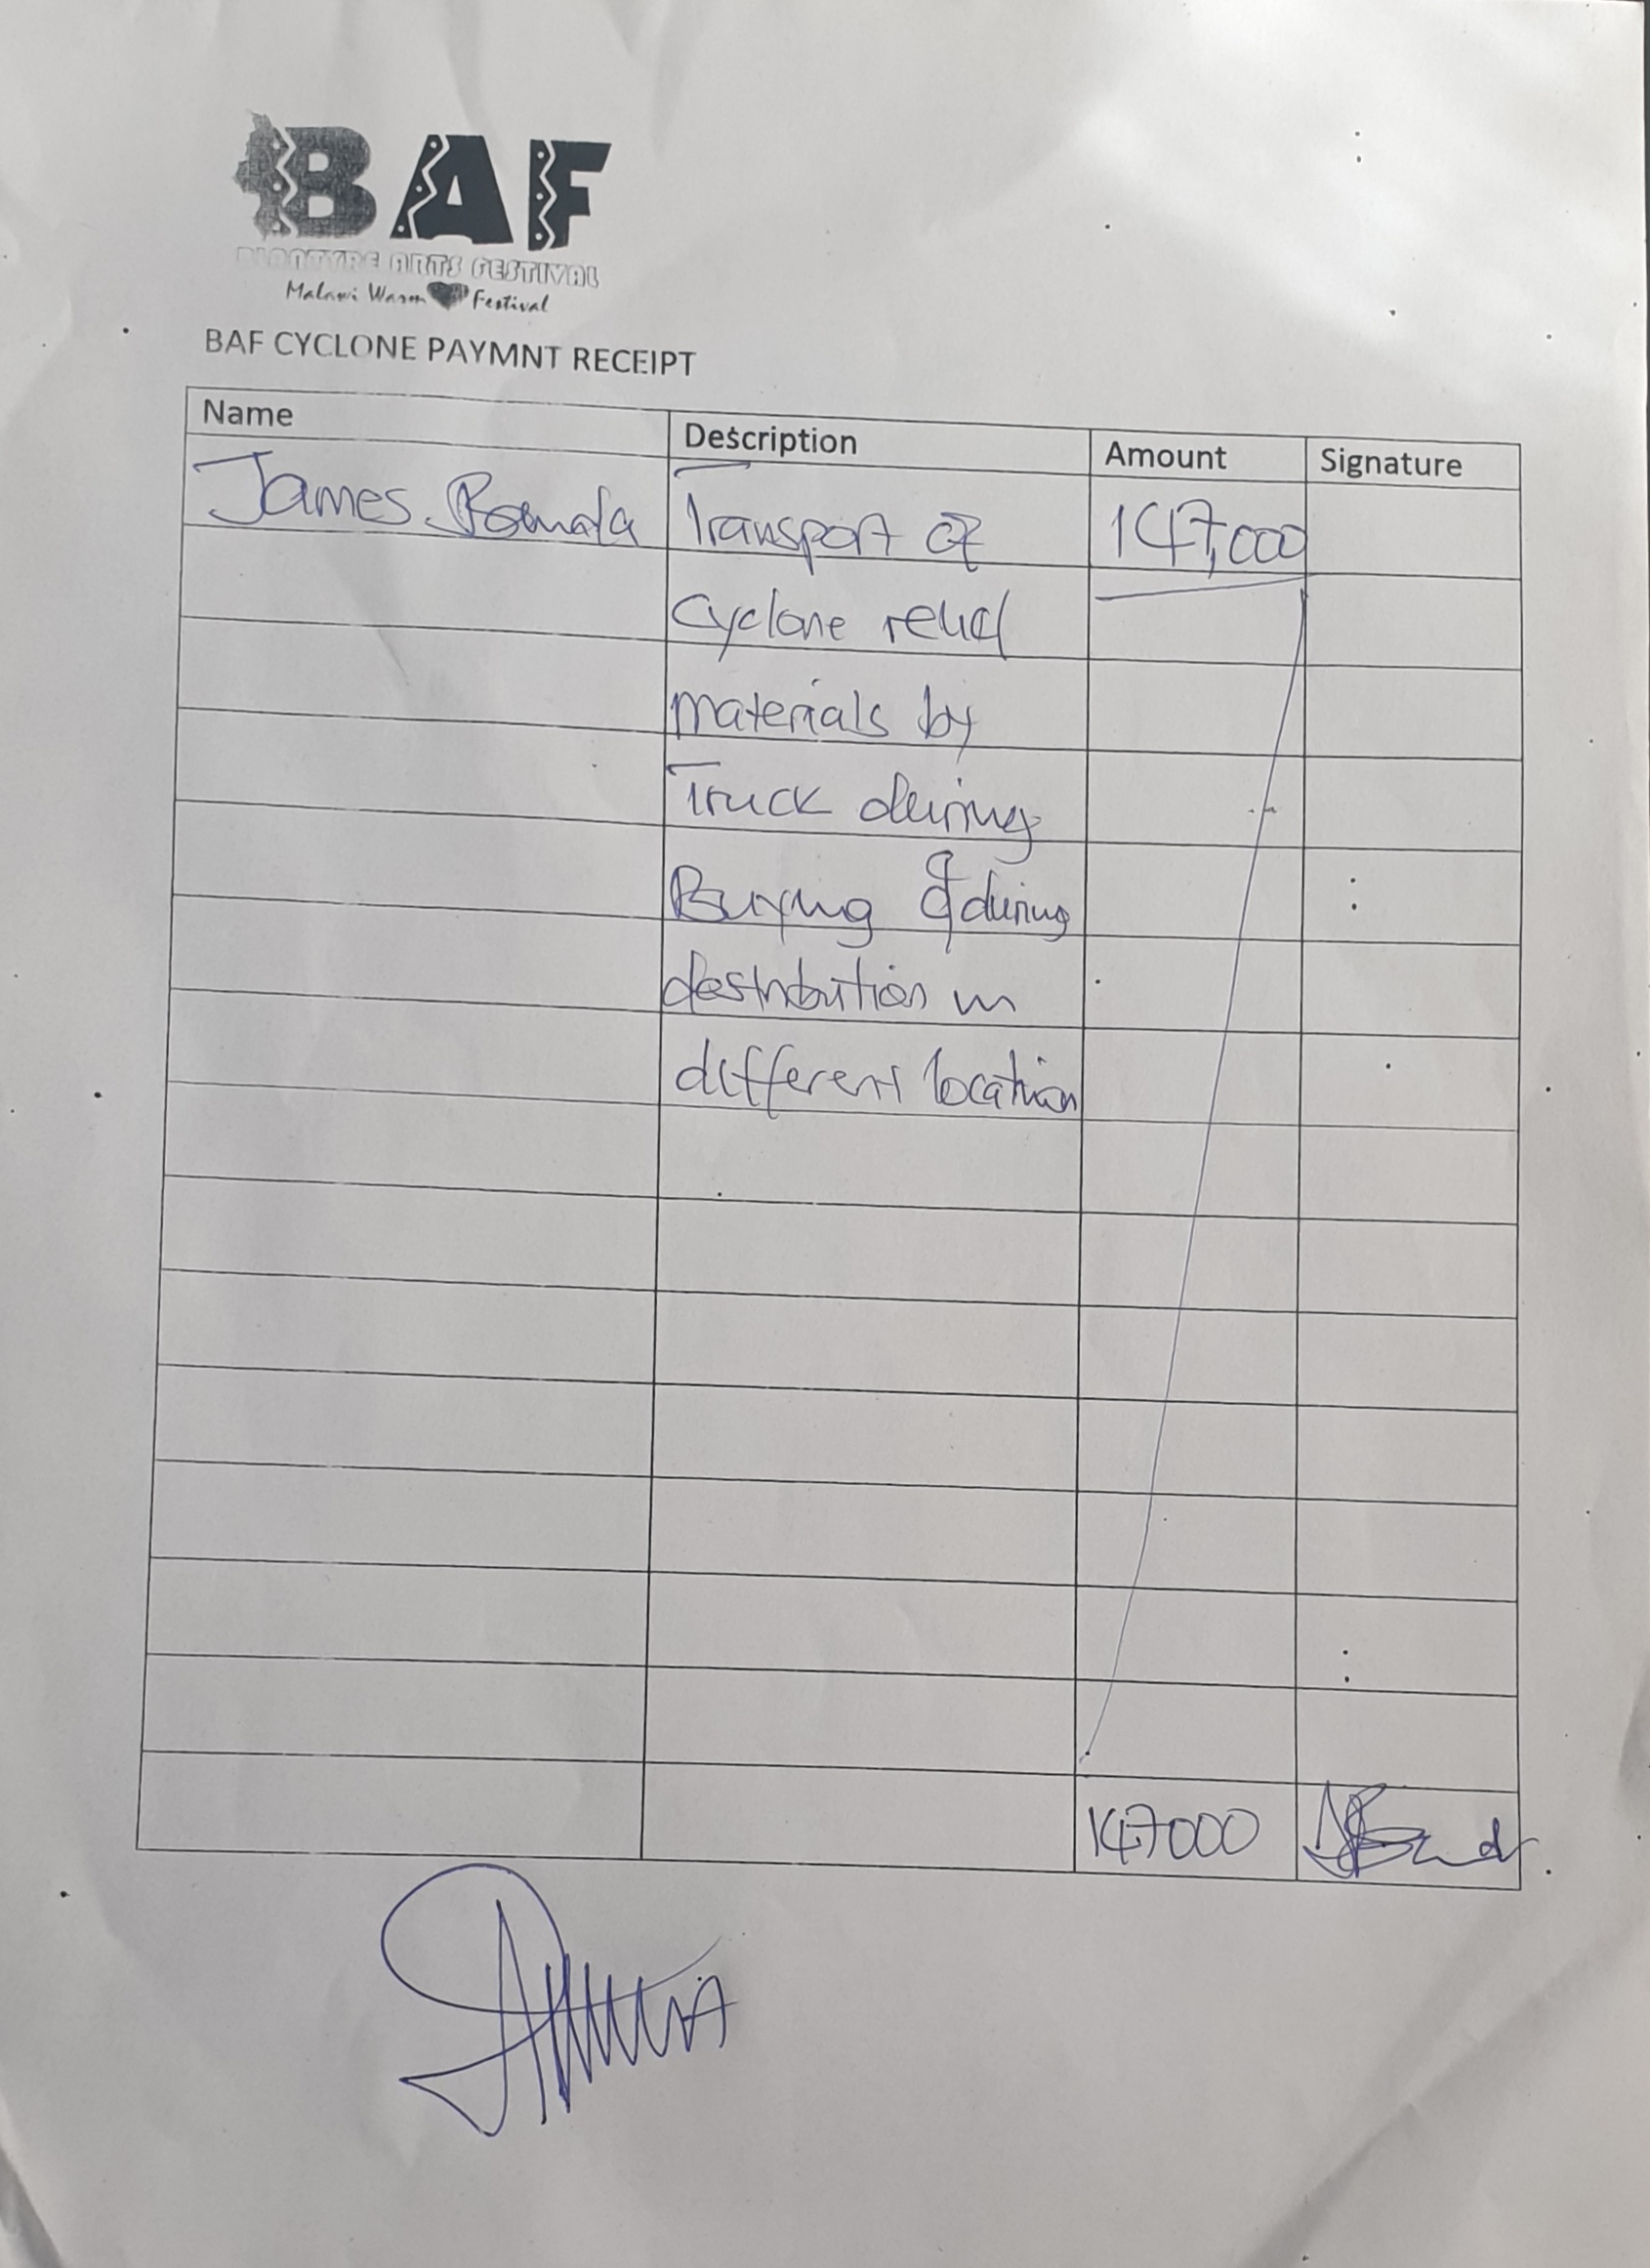 BAF
BLANTYRE ARTS FESTIVAL
Malawi Warm Festival
BAF CYCLONE PAYMNT RECEIPT
Name Description Amount Signature
James Transport of 147,000
Cyclone relief
materials by
Truck during
Buying & during
destribution in
different location
147000